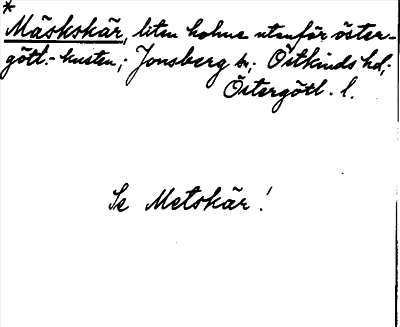 *
Mäskskär, liten holme utanför öster-
gött.-kusten; Jonsberg sn; Östkinds hd;
Östergötl. l.
Se Metskär!